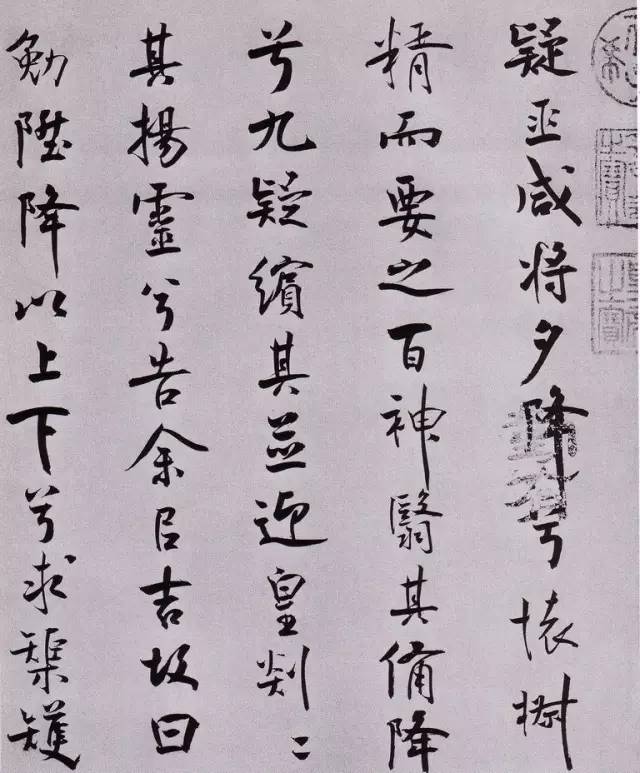 疑巫咸将夕降兮懐椒
糈而要之百神翳其備降
兮九疑繽其並迎皇剡〻
其揚靈兮告余㠯吉故曰
勉陞降以上下兮求榘矱